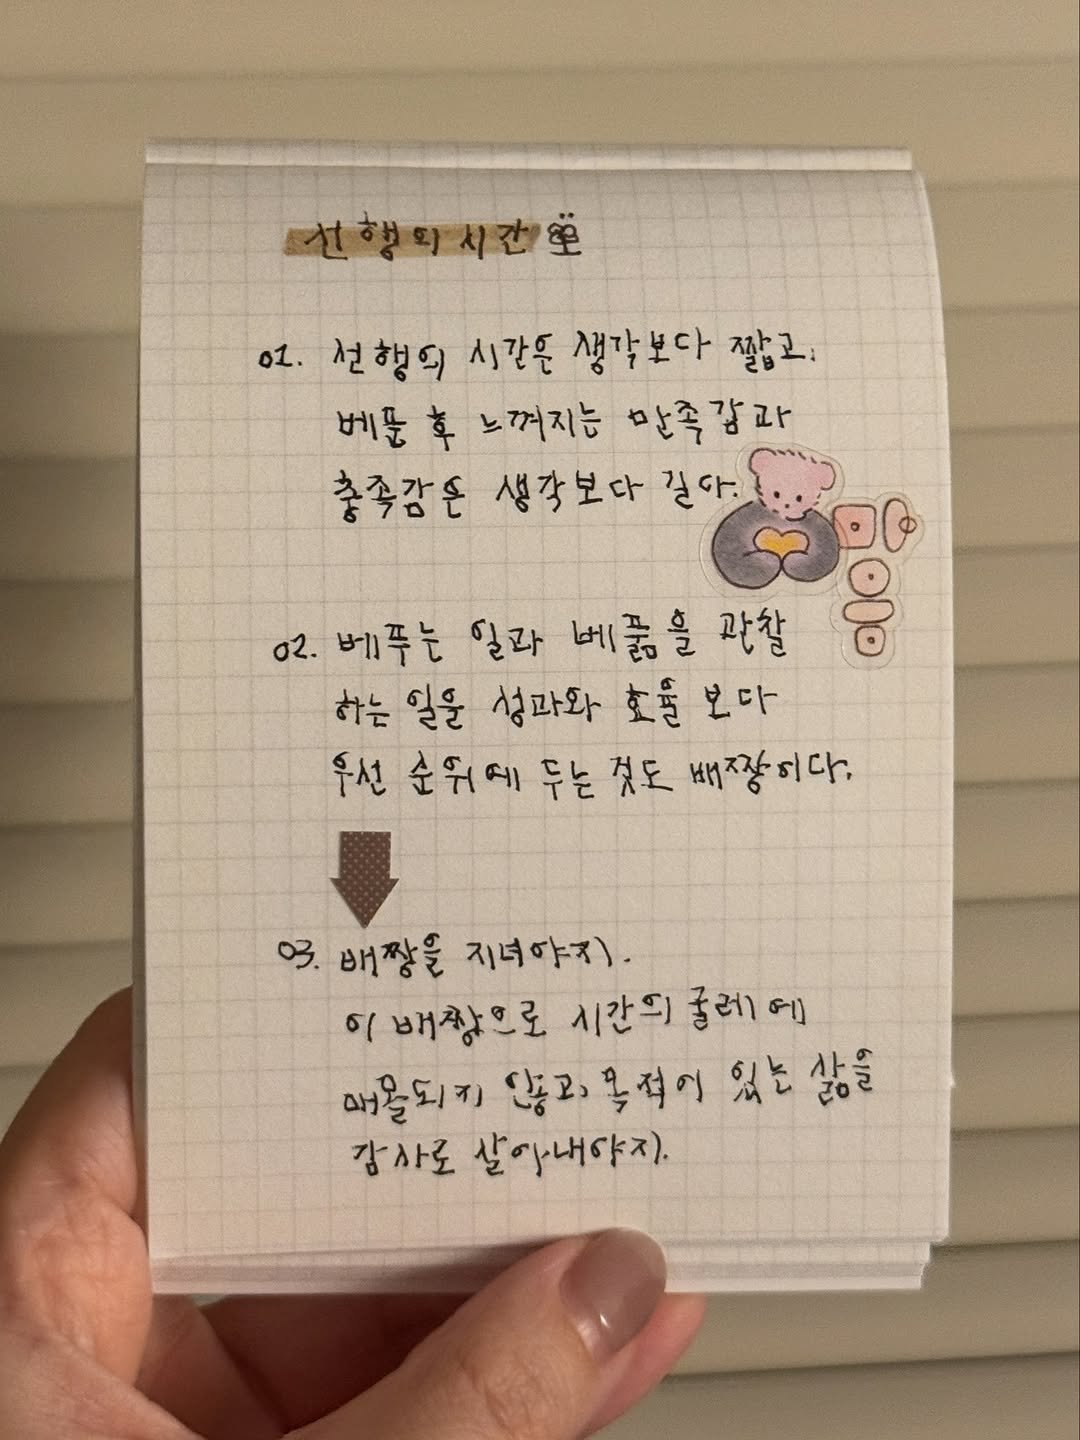 선행의 시간
01. 선행의 시간은 생각보다 짧고,
베푼 후 느껴지는 만족감과
충족감은 생각보다 길다.
마음
02. 베푸는 일과 베풂을 관찰
하는 일을 성과와 효율 보다
우선 순위에 두는 것도 배짱이다.
03. 배짱을 지녀야지.
이 배짱으로 시간의 굴레에
매몰되지 않고, 목적이 있는 삶을
감사로 살아내야지.